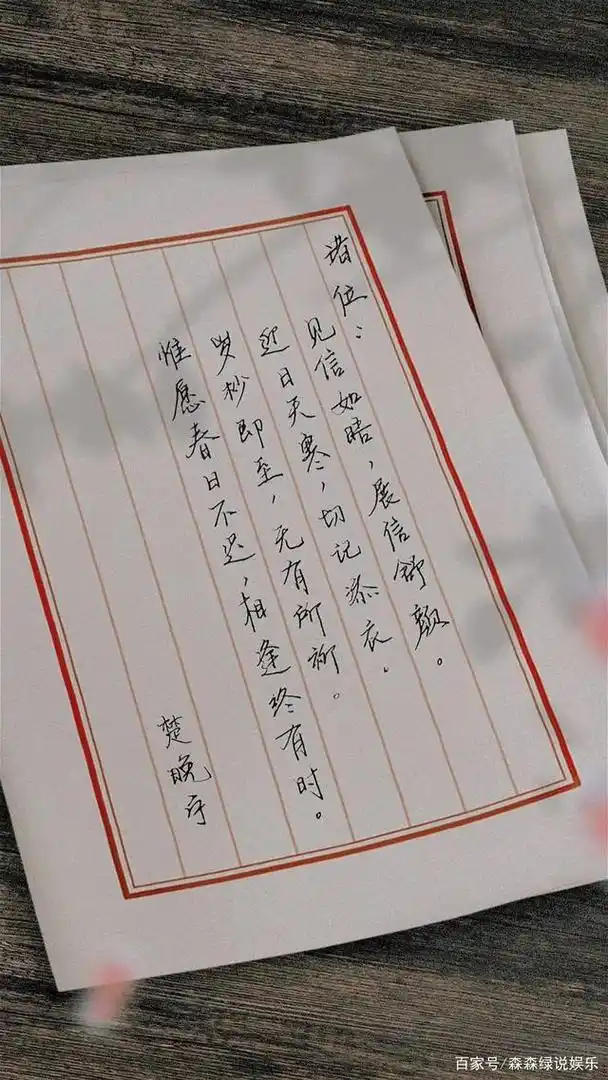 诸位：
见信如晤，展信舒颜。
近日天寒，切记添衣。
岁杪即至，无有所祈。
惟愿春日不迟，相逢终有时。
楚晚宁
百家号/森森绿说娱乐